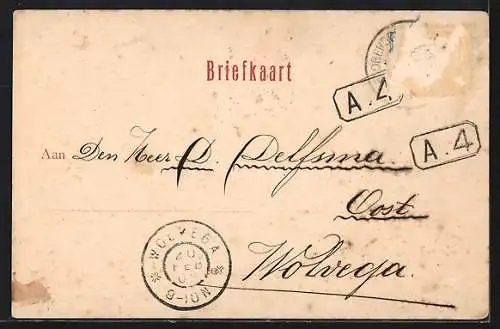 Briefkaart
A.4
A.4
Aan Den Heer D. Delfsma.
Oost
Wolvega.
WOLVEGA
20
FEB
9-10N